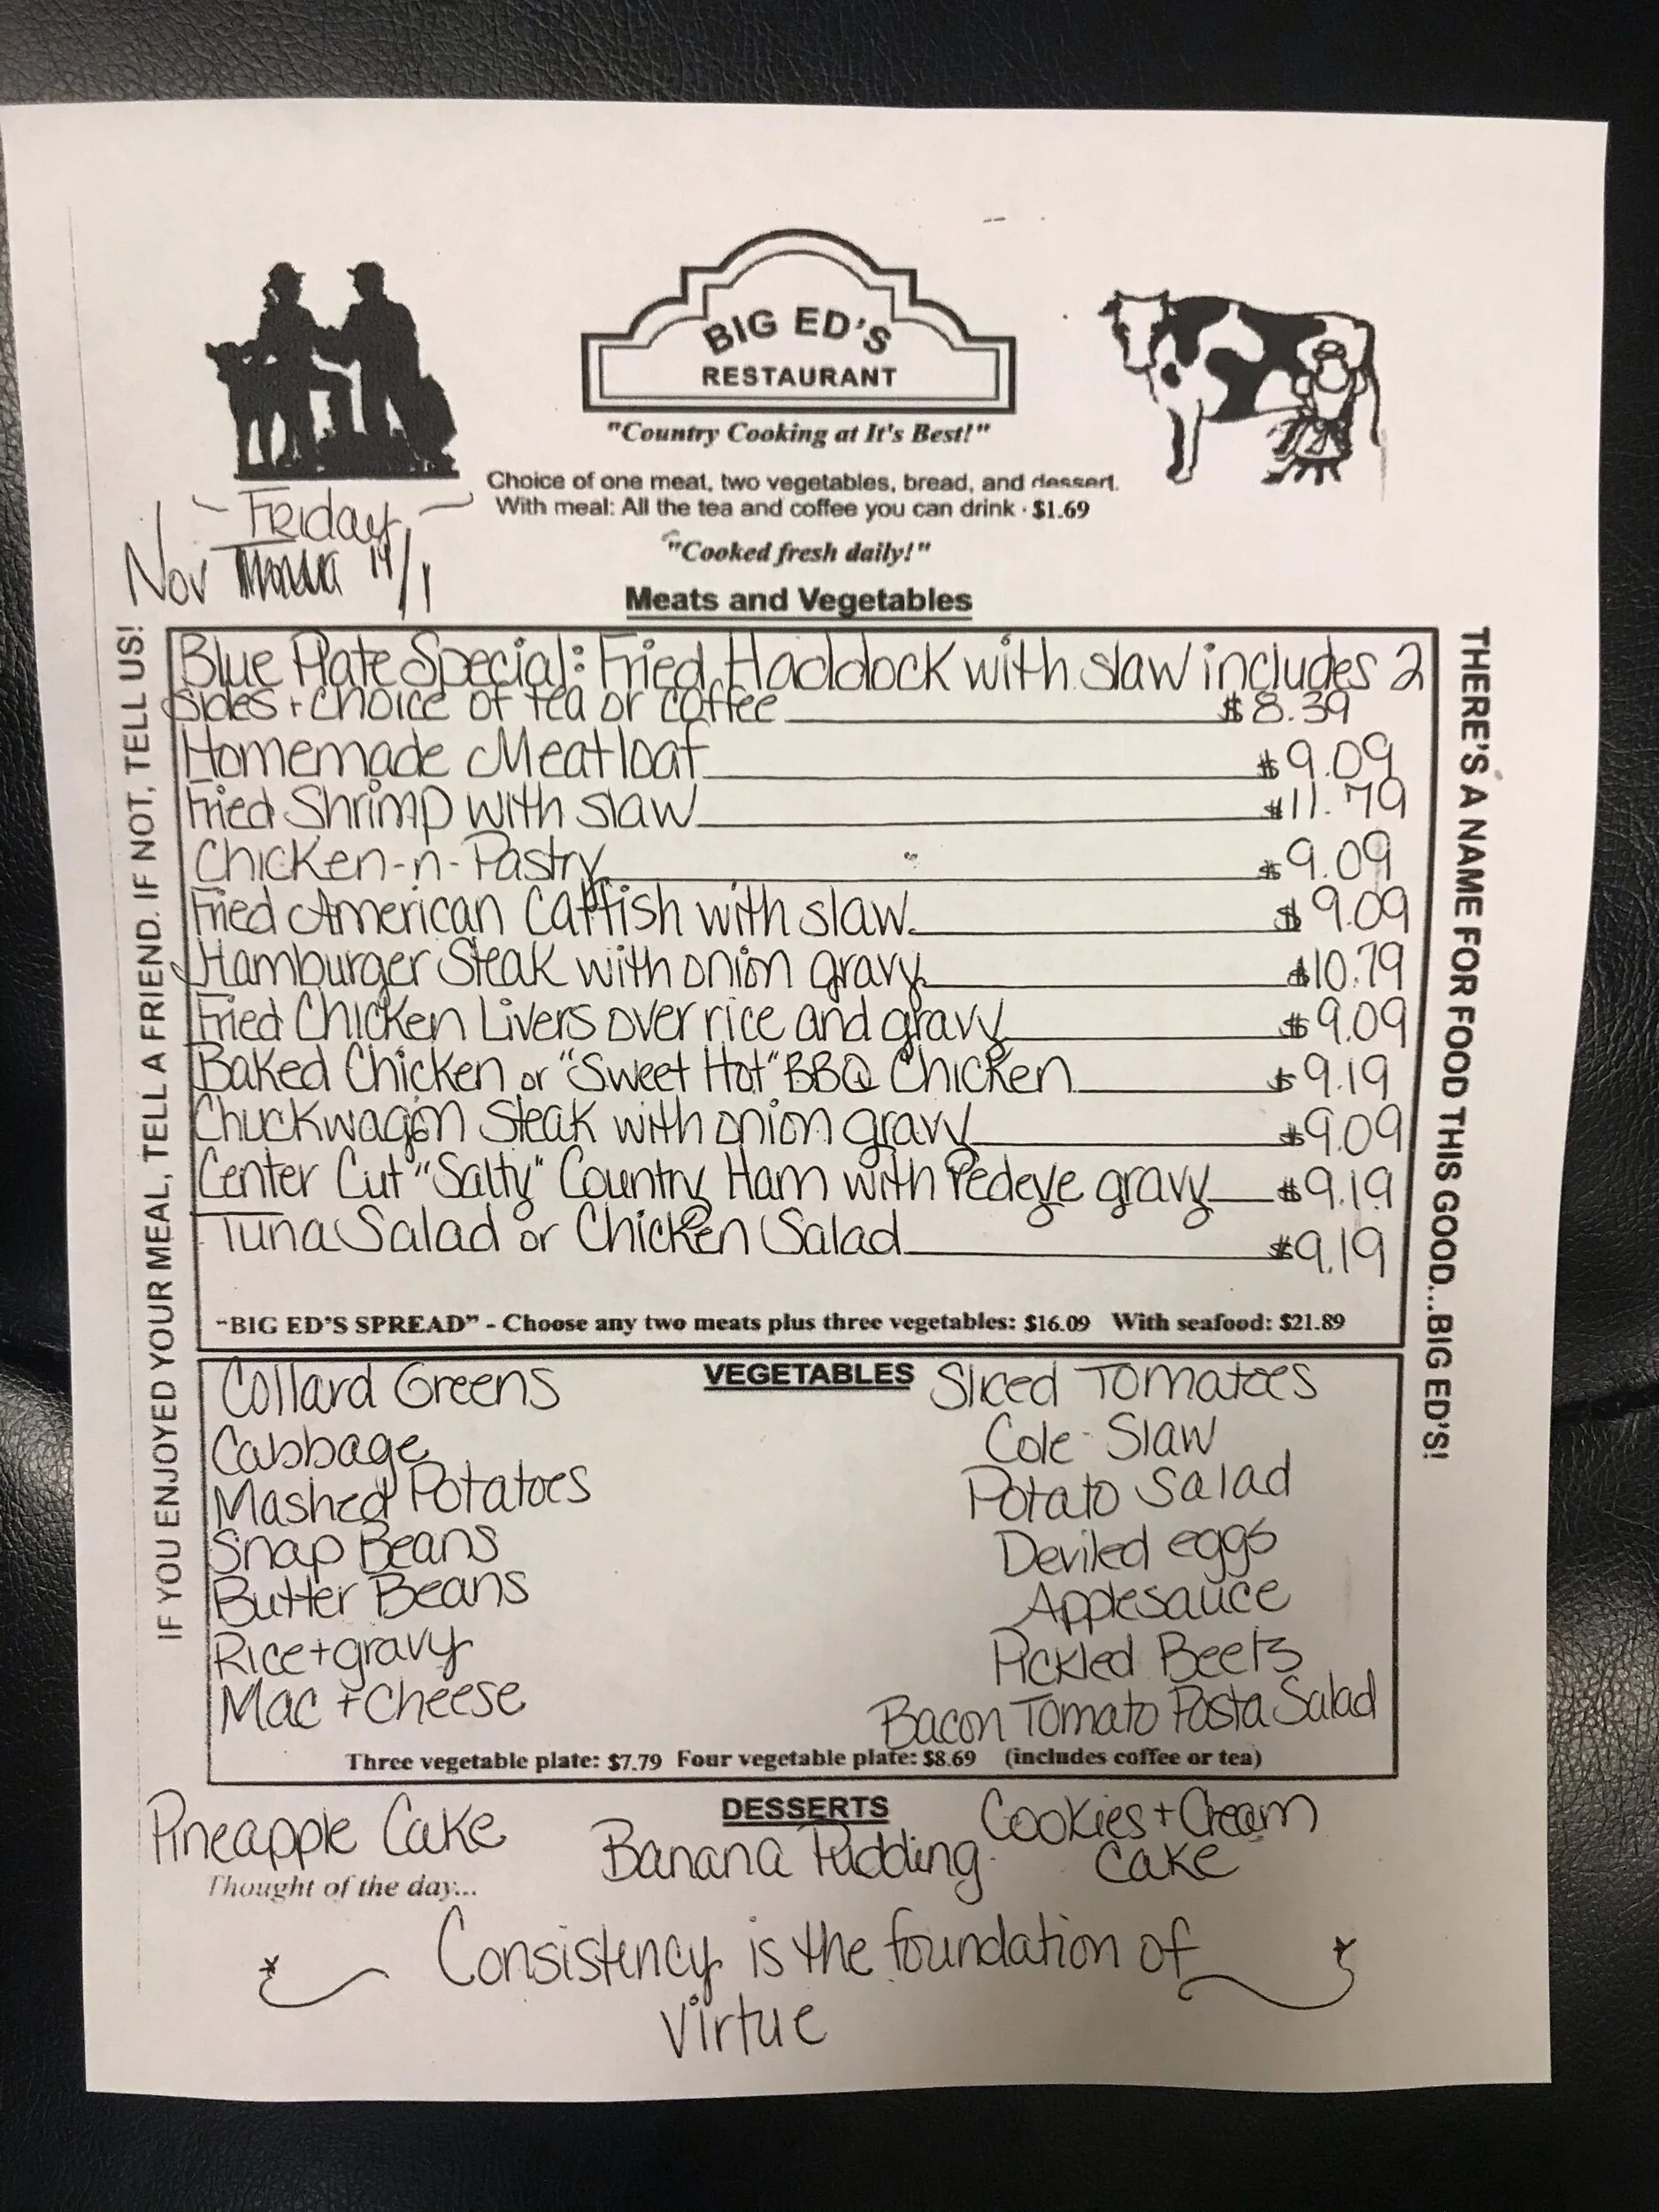 BIG ED'S
RESTAURANT
"Country Cooking at It's Best!"
Choice of one meat, two vegetables, bread, and dessert.
With meal: All the tea and coffee you can drink · $1.69
"Cooked fresh daily!"
Friday
Nov /1
Meats and Vegetables
IF YOU ENJOYED YOUR MEAL, TELL A FRIEND. IF NOT, TELL US!
Blue Plate Special: Fried Haddock with slaw includes 2
sides + choice of tea or coffee $8.39
Homemade Meatloaf $9.09
Fried Shrimp with slaw $11.79
Chicken-n-Pastry $9.09
Fried American Catfish with slaw $9.09
Hamburger Steak with onion gravy $10.79
Fried Chicken Livers over rice and gravy $9.09
Baked Chicken or "Sweet Hot" BBQ Chicken $9.19
Chuckwagon Steak with onion gravy $9.09
Center Cut "Salty" Country Ham with redeye gravy $9.19
Tuna Salad or Chicken Salad $9.19
"BIG ED'S SPREAD" - Choose any two meats plus three vegetables: $16.09 With seafood: $21.89
THERE'S A NAME FOR FOOD THIS GOOD...BIG ED'S!
VEGETABLES
Collard Greens
Cabbage
Mashed Potatoes
Snap Beans
Butter Beans
Rice + gravy
Mac + Cheese
Sliced Tomatoes
Cole Slaw
Potato Salad
Deviled eggs
Applesauce
Pickled Beets
Bacon Tomato Pasta Salad
Three vegetable plate: $7.79 Four vegetable plate: $8.69 (includes coffee or tea)
DESSERTS
Pineapple Cake
Banana Pudding
Cookies + Cream
Cake
Thought of the day...
Consistency is the foundation of
virtue